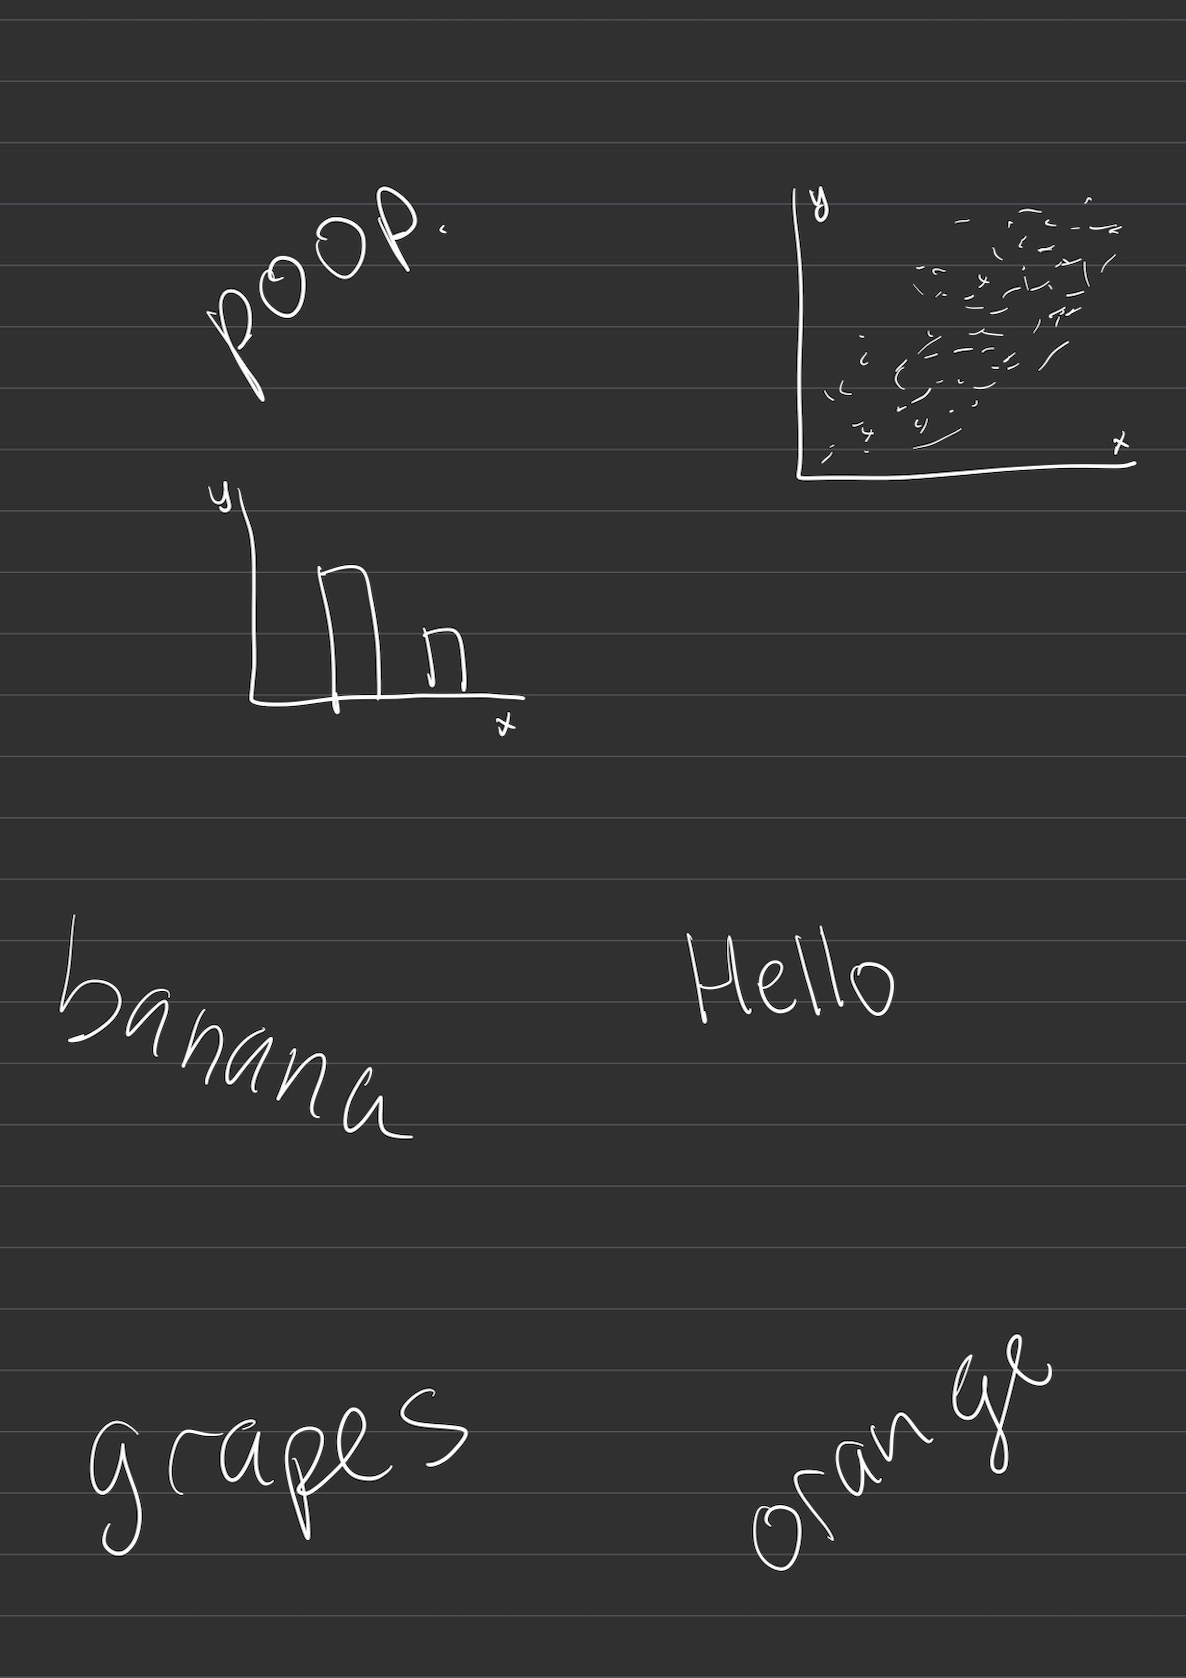 poop.
y
x
y
x
banana
Hello
grapes
orange